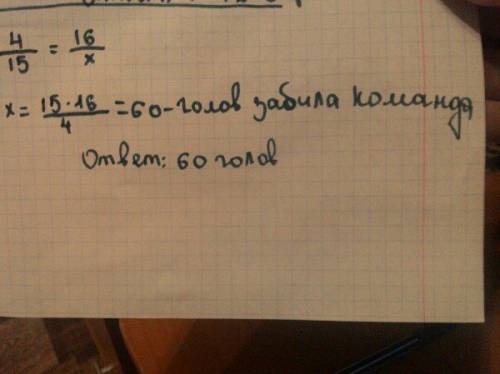 4/15 = 16/x
x = 15·16/4 = 60-голов забила команда
Ответ: 60 голов